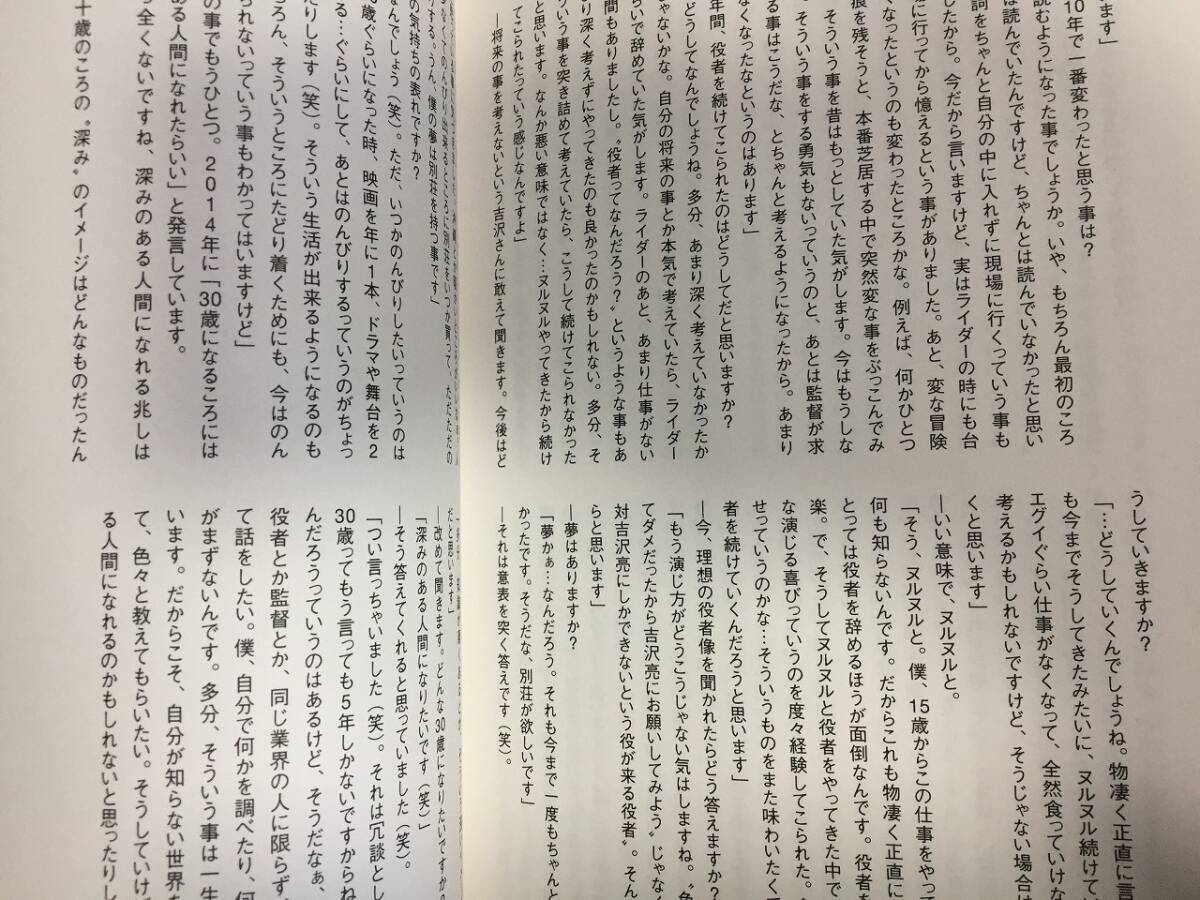 ます」
10年で一番変わったと思う事は？
読むようになった事でしょうか。いや、もちろん最初のころ
は読んでいたんですけど、ちゃんとは読んでいなかったと思い
詞をちゃんと自分の中に入れずに現場に行くっていう事も
したから。今だから言いますけど、実はライダーの時にも台
に行ってから憶えるという事がありました。あと、変な冒険
なったというのも変わったところかな。例えば、何かひとつ
痕を残そうと、本番芝居する中で突然変な事をぶっこんでみ
そういう事を昔はもっとしていた気がします。今はもうしな
。そういう事をする勇気もないっていうのと、あとは監督が求
る事はこうだな、とちゃんと考えるようになったから。あまり
なくなったなというのはあります」
年間、役者を続けてこられたのはどうしてだと思いますか？
どうしてなんでしょうね。多分、あまり深く考えていなかったか
ゃないかな。自分の将来の事とか本気で考えていたら、ライダー
らいで辞めていた気がします。ライダーのあと、あまり仕事がない
間もありましたし。〝役者ってなんだろう？〟というような事もあ
り深く考えずにやってきたのも良かったのかもしれない。多分、そ
ういう事を突き詰めて考えていたら、こうして続けてこられなかった
と思います。なんか悪い意味ではなく…ヌルヌルやってきたから続け
てこられたっていう感じなんですよ」
―将来の事を考えないという吉沢さんに敢えて聞きます。今後はど
うしていきますか？
「…どうしていくんでしょうね。物凄く正直に言
も今までそうしてきたみたいに、ヌルヌル続けて
エグイぐらい仕事がなくなって、全然食っていけな
考えるかもしれないですけど、そうじゃない場合は
くと思います」
―いい意味で、ヌルヌルと。
「そう、ヌルヌルと。僕、15歳からこの仕事をやっ
何も知らないんです。だからこれも物凄く正直に
とっては役者を辞めるほうが面倒なんです。役者を
楽。で、そうしてヌルヌルと役者をやってきた中で
な演じる喜びっていうのを度々経験してこられた。
せっていうのかな…そういうものをまた味わいたくて
者を続けていくんだろうと思います」
―今、理想の役者像を聞かれたらどう答えますか？
「もう演じ方がどうこうじゃない気はしますね。〝色
てダメだったから吉沢亮にお願いしてみよう〟じゃなく
対吉沢亮にしかできないという役が来る役者〟。そん
らと思います」
―夢はありますか？
「夢かぁ…なんだろう。それも今まで一度もちゃんと
かったです。そうだな、別荘が欲しいです」
―それは意表を突く答えです（笑）。
りする。うん、僕の夢は別荘を持つ事です」
の気持ちの表れですか？
なんでしょう（笑）。ただ、いつかのんびりしたいっていうのは
歳ぐらいになった時、映画を年に1本、ドラマや舞台を2
る…ぐらいにして、あとはのんびりするっていうのがちょっ
たりします（笑）。そういう生活が出来るようになるのも
ろん、そういうところにたどり着くためにも、今はのん
られないっていう事もわかってはいますけど」
の事でもうひとつ。2014年に「30歳になるころには
ある人間になれたらいい」と発言しています。
っ全くないですね、深みのある人間になれる兆しは
十歳のころの〝深み〟のイメージはどんなものだったん
だと思います」
―改めて聞きます。どんな30歳になりたいですか
「深みのある人間になりたいです（笑）」
―そう答えてくれると思っていました（笑）。
「つい言っちゃいました（笑）。それは冗談とし
30歳ってもう言っても5年しかないですからね
んだろうっていうのはあるけど、そうだなぁ、
役者とか監督とか、同じ業界の人に限らず
て話をしたい。僕、自分で何かを調べたり、何
がまずないんです。多分、そういう事は一生
います。だからこそ、自分が知らない世界を
て、色々と教えてもらいたい。そうしていけば
る人間になれるのかもしれないと思ったりし